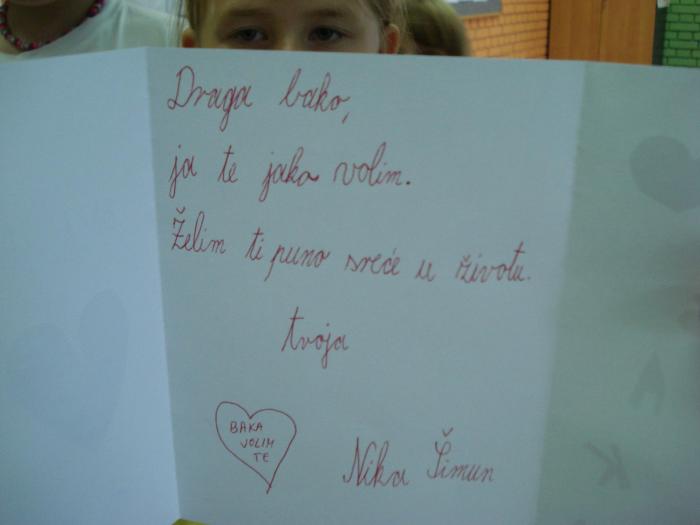 Draga bako,
ja te jako volim.
Želim ti puno sreće u životu.
tvoja
BAKA
VOLIM
TE
Nika Šimun